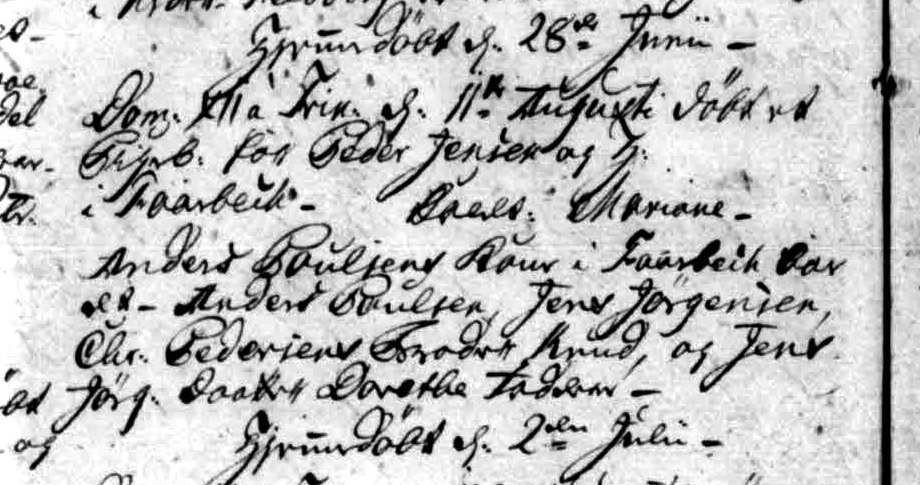 Hjemmedöbt d. 28de Junii –
Dom. XII à Trin. d. 11te Augusti döbt et
Pigeb. for Peder Jensen og H:
i Faarbech – Kaldt: Mariane –
Anders Poulsens Kone i Faarbech bar
det – Anders Poulsen, Jens Jörgensen,
Chr. Pedersens Broder Knud, og Jens
Jörg. Daatter Dorethe Faddere –
Hjemmedöbt d. 2den Julii –